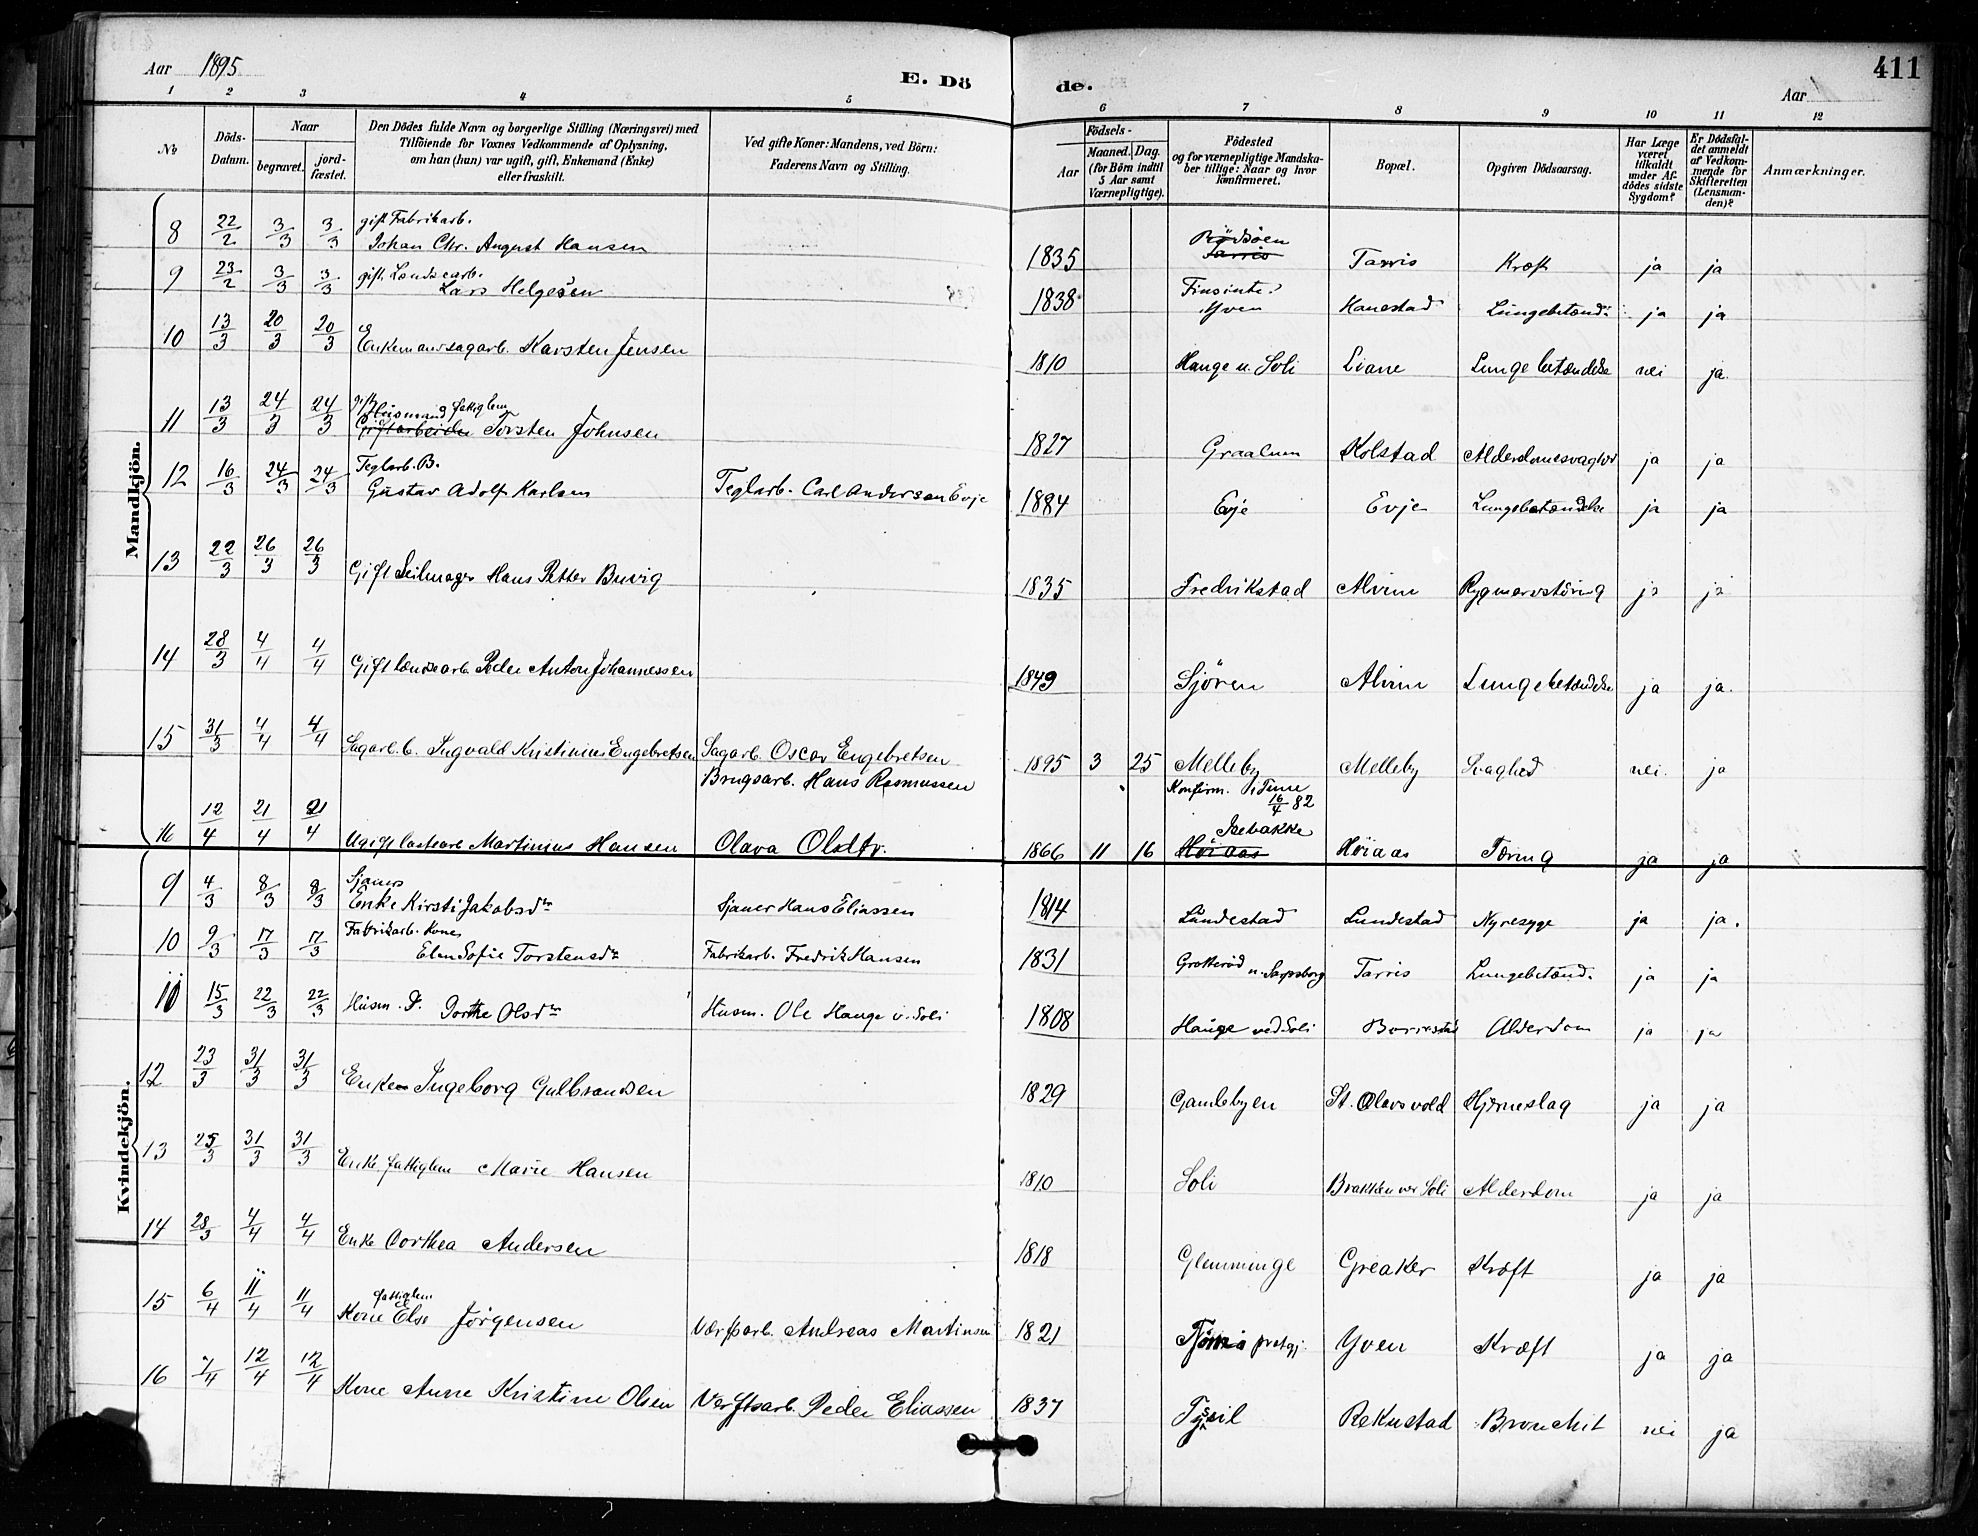 Aar 1895
E. Dö
de.
Aar
411
1 2 3 4 5 6 7 8 9 10 11 12
No
Döds-Datum.
Naar
begravet.
jord-fæstet.
Den Dödes fulde Navn og borgerlige Stilling (Næringsvei) med
Tilföiende for Voxnes Vedkommende af Oplysning,
om han (hun) var ugift, gift, Enkemand (Enke)
eller fraskilt.
Ved gifte Koner: Mandens, ved Börn:
Faderens Navn og Stilling.
Födsels-
Aar
Maaned. Dag.
(for Börn indtil
5 Aar samt
Værnepligtige).
Födested
og for værnepligtige Mandska-
ber tillige: Naar og hvor
konfirmeret.
Bopæl.
Opgiven Dödsaarsag.
Har Læge
været
tilkaldt
under Af-
dödes sidste
Sygdom?
Er Dødsfal-
det anmeldt
af Vedkom-
mende for
Skifteretten
(Lensman-
den)?
Anmærkninger.
Mandkjön.
8 22/2 3/3 3/3 gift Fabrikarb.
Johan Chr. August Hansen 1835 Tarris Kræft ja ja
9 23/2 3/3 3/3 gift Landsearb.
Lars Helgesen 1838 Yven Hanestad Lungebetænd: ja ja
10 13/3 20/3 20/3 Enkemand sagarb. Karsten Jensen 1810 Hauge u. Soli Liane Lungebetændelse nei ja.
11 13/3 24/3 24/3 gift Husmand fattiglem
Giftarbeider Torsten Johnsen 1827 Graalum Kolstad Alderdomssvaghed ja ja
12 16/3 24/3 24/3 Teglarb. B.
Gustav Adolf Karlsen Teglarb. Carl Andersen Evje 1884 Evje Evje Lungebetændelse ja ja
13 22/3 26/3 26/3 Gift Seilmager Hans Petter Buvig 1835 Fredrikstad Alvim Rygmarvstæring ja ja
14 28/3 4/4 4/4 Gift landsearb. Peder Anton Johannessen 1849 Sjøren Alvim Lungebetændelse ja ja.
15 31/3 4/4 4/4 Sagarb. b. Ingvald Kristinius Engebretsen Sagarb. Oscar Engebretsen 1895 3 25 Melleby Melleby Svaghed nei. ja
Brugsarb. Hans Rasmussen Konfirm. i Tune
16/4 82
16 12/4 21/4 21/4 Ugift lastearb Martinius Hansen Olava Olsdtr. 1866 11 16 Isebakke
Høiaas Høiaas Tæring ja ja
Kvindekjön.
9 4/3 8/3 8/3 Sjauers
Enke Kirsti Jakobsdtr Sjauer Hans Eliassen 1814 Lundestad Lundestad Nyresyge ja ja.
10 9/3 17/3 17/3 Fabrikarb. Kone
Elen Sofie Torstensdtr Fabrikarb. Fredrik Hansen 1831 Grotterød u. Sarpsborg Tarris Lungebetænd. ja ja
11 15/3 22/3 22/3 Husm. D. Dorthe Olsdtr Husm. Ole Hauge v. Soli 1808 Hauge ved Soli Borrestad Alderdom ja ja
12 23/3 31/3 31/3 Enke Ingeborg Gulbrandsen 1829 Gamlebyen St. Olavsvold Hjerneslag ja ja
13 25/3 31/3 31/3 Enke fattiglem Marie Hansen 1810 Soli Brakken ved Soli Alderdom ja ja
14 28/3 4/4 4/4 Enke Dorthea Andersen 1818 Glemminge Greaker Kræft ja ja
15 6/4 11/4 11/4 fattiglem
Kone Else Jörgensen Værftsarb. Andreas Martinsen 1821 prstgj. Yven Kræft ja ja
16 7/4 12/4 12/4 Kone Anne Kristine Olsen Verftsarb. Peder Eliassen 1837 Rekustad Bronchit nei ja